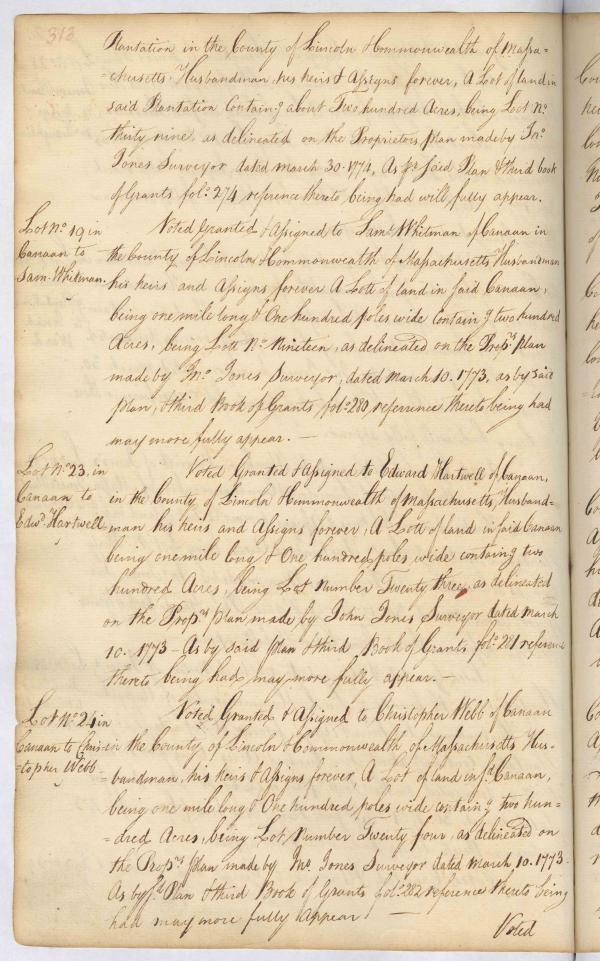 313
Plantation in the County of Lincoln & Commonwealth of Massa-
=chusetts, Husbandman, his heirs & Assigns forever, A Lot of land in
said Plantation Containg about Two hundred Acres, being Lot No.
thirty nine, as delineated on the Proprietors plan made by Jno.
Jones Surveyor dated march 30. 1774, As pr. said Plan & third book
of Grants folo. 274 reference thereto being had will fully appear.
Lot No. 19 in
Canaan to
Sam. Whitman.
Voted Granted & Assigned to Saml. Whitman of Canaan in
the County of Lincoln & Commonwealth of Massachusetts Husbandman
his heirs and Assigns forever A Lott of land in said Canaan,
being one mile long & One hundred poles wide containg two hundred
Acres, being Lott No. Nineteen, as delineated on the Props. plan
made by Jno. Jones Surveyor, dated March 10. 1773, as by said
plan, & third Book of Grants folo. 280 reference thereto being had
may more fully appear. —
Lot No. 23. in
Canaan to
Edwd. Hartwell
Voted Granted & Assigned to Edward Hartwell of Canaan,
in the County of Lincoln & Commonwealth of Massachusetts, Husband-
man his heirs and Assigns forever, A Lott of land in said Canaan
being one mile long & One hundred poles wide containg two
hundred Acres, being Lot Number Twenty three, as delineated
on the Props. plan made by John Jones Surveyor dated March
10. 1773 - As by said plan & third Book of Grants folo. 281 reference
thereto being had may more fully appear. —
Lot No. 24 in
Canaan to Chris-
=topher Webb
Voted Granted & Assigned to Christopher Webb of Canaan
in the County of Lincoln & Commonwealth of Massachusetts Hus-
bandman, his heirs & Assigns forever, A Lot of land in sd. Canaan,
being one mile long & One hundred poles wide containg two hun=
=dred Acres, being Lot Number Twenty four, as delineated on
the Props. plan made by Jno. Jones Surveyor dated March 10. 1773.
As by sd. Plan & third Book of Grants folo. 282 reference thereto being
had may more fully Appear —
Voted